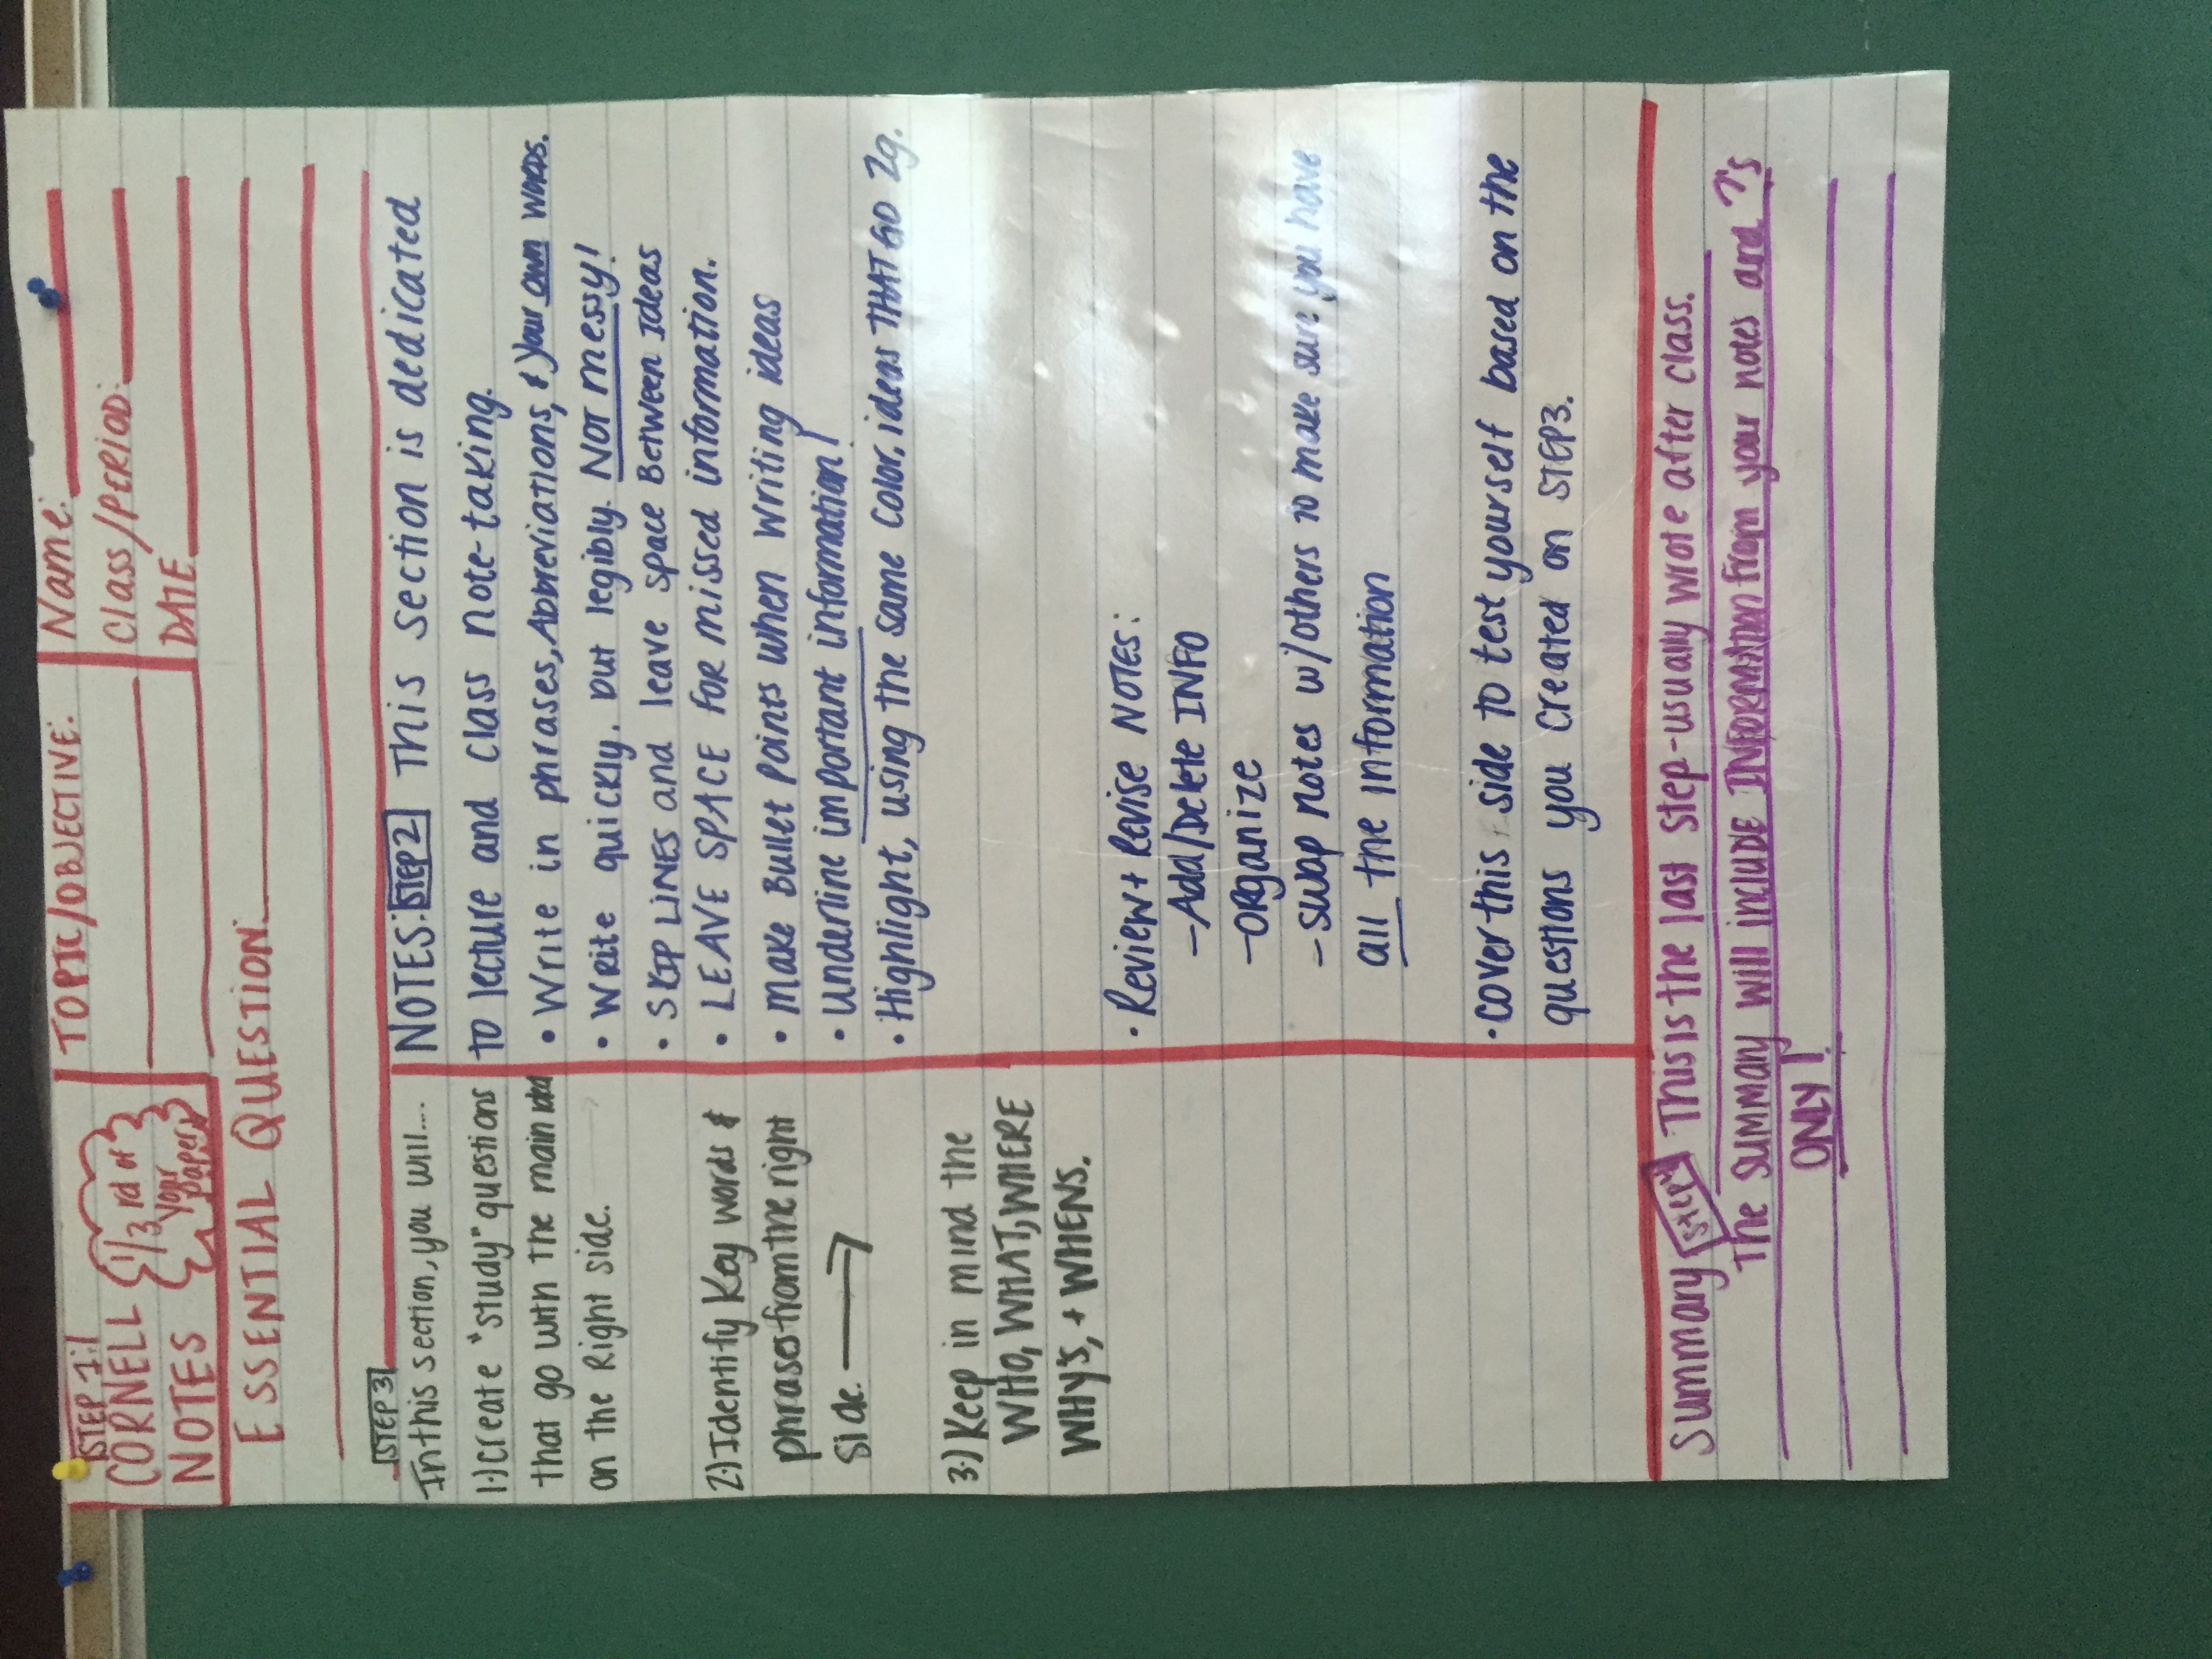 STEP 1:
CORNELL
NOTES
1/3 rd of
your
paper
TOPIC/OBJECTIVE:
Name:
Class/PERIOD:
DATE
ESSENTIAL QUESTION
STEP 3
In this section, you will...
1.) Create "study" questions
that go with the main idea
on the Right side.
2.) Identify Key words &
phrases from the right
side. →
3.) Keep in mind the
WHO, WHAT, WHERE
WHY'S, + WHENS.
NOTES: STEP 2 This section is dedicated
to lecture and class note-taking.
• Write in phrases, Abbreviations, & your own words.
• Write quickly, but legibly. NOT messy!
• SKIP LINES and leave space Between Ideas
• LEAVE SPACE for missed information.
• Make Bullet Points when writing ideas
• Underline important information!
• Highlight, using the same color, ideas THAT GO 2g.
• Review + Revise NOTES:
- Add/Delete INFO
- ORganize
- swap notes w/others to make sure you have
all the information
• cover this side to test yourself based on the
questions you created on STEP3.
Summary STEP This is the last step-usually wrote after class.
The summary will include INFORMATION from your notes and ?s
ONLY!